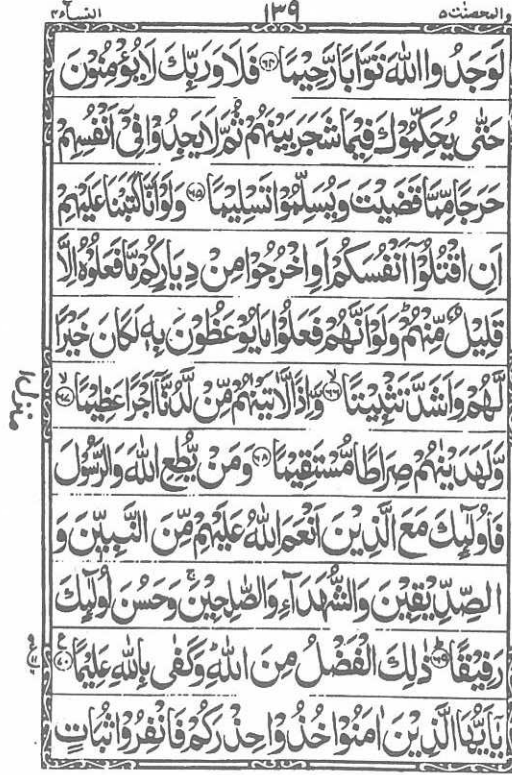 والمحصنت۵ ۱۳۹ النسآء۴
لَوَجَدُوا اللّٰهَ تَوَّابًا رَّحِيْمًا ﴿۶۴﴾ فَلَا وَرَبِّكَ لَا يُؤْمِنُوْنَ
حَتّٰى يُحَكِّمُوْكَ فِيْمَا شَجَرَ بَيْنَهُمْ ثُمَّ لَا يَجِدُوْا فِيْٓ اَنْفُسِهِمْ
حَرَجًا مِّمَّا قَضَيْتَ وَيُسَلِّمُوْا تَسْلِيْمًا ﴿۶۵﴾ وَلَوْ اَنَّا كَتَبْنَا عَلَيْهِمْ
اَنِ اقْتُلُوْٓا اَنْفُسَكُمْ اَوِ اخْرُجُوْا مِنْ دِيَارِكُمْ مَّا فَعَلُوْهُ اِلَّا
قَلِيْلٌ مِّنْهُمْ ؕ وَلَوْ اَنَّهُمْ فَعَلُوْا مَا يُوْعَظُوْنَ بِهٖ لَكَانَ خَيْرًا
لَّهُمْ وَاَشَدَّ تَثْبِيْتًا ﴿۶۶﴾ۙ وَّاِذًا لَّاٰتَيْنٰهُمْ مِّنْ لَّدُنَّآ اَجْرًا عَظِيْمًا ﴿۶۷﴾ۙ
وَّلَهَدَيْنٰهُمْ صِرَاطًا مُّسْتَقِيْمًا ﴿۶۸﴾ وَمَنْ يُّطِعِ اللّٰهَ وَالرَّسُوْلَ
فَاُولٰٓئِكَ مَعَ الَّذِيْنَ اَنْعَمَ اللّٰهُ عَلَيْهِمْ مِّنَ النَّبِيّٖنَ وَ
الصِّدِّيْقِيْنَ وَالشُّهَدَآءِ وَالصّٰلِحِيْنَ ۚ وَحَسُنَ اُولٰٓئِكَ
رَفِيْقًا ﴿۶۹﴾ؕ ذٰلِكَ الْفَضْلُ مِنَ اللّٰهِ ؕ وَكَفٰى بِاللّٰهِ عَلِيْمًا ﴿۷۰﴾ع
يٰٓاَيُّهَا الَّذِيْنَ اٰمَنُوْا خُذُوْا حِذْرَكُمْ فَانْفِرُوْا ثُبَاتٍ
منزل۱